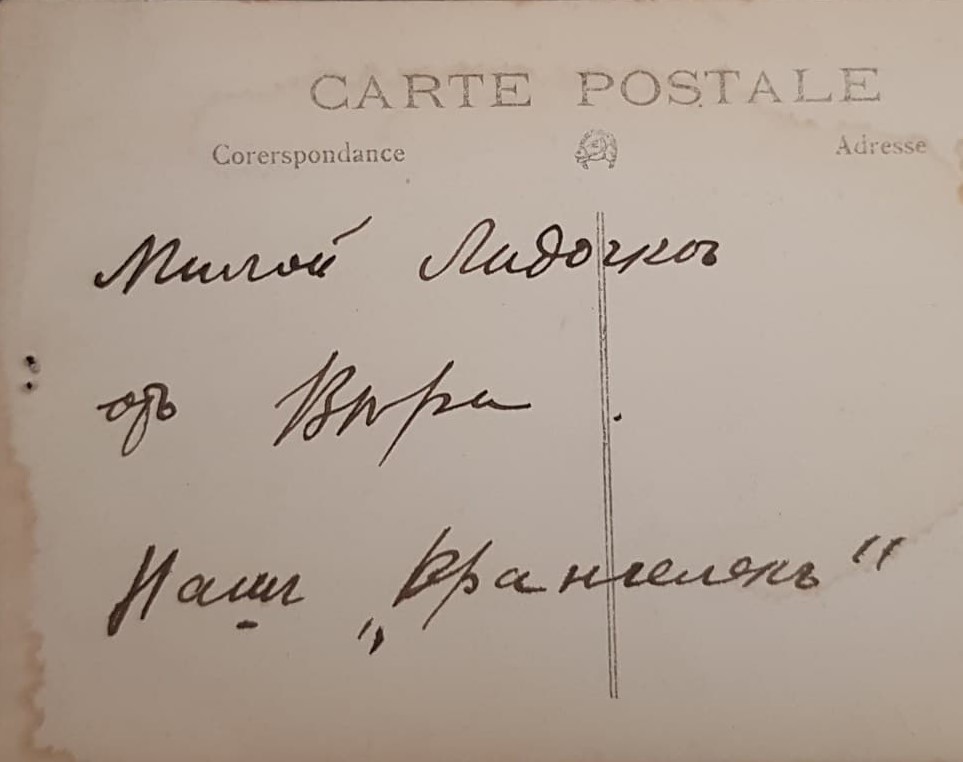 CARTE POSTALE
Corerspondance Adresse
Милой Лидочкѣ
отъ Вѣры
Нашъ „Врангелекъ"